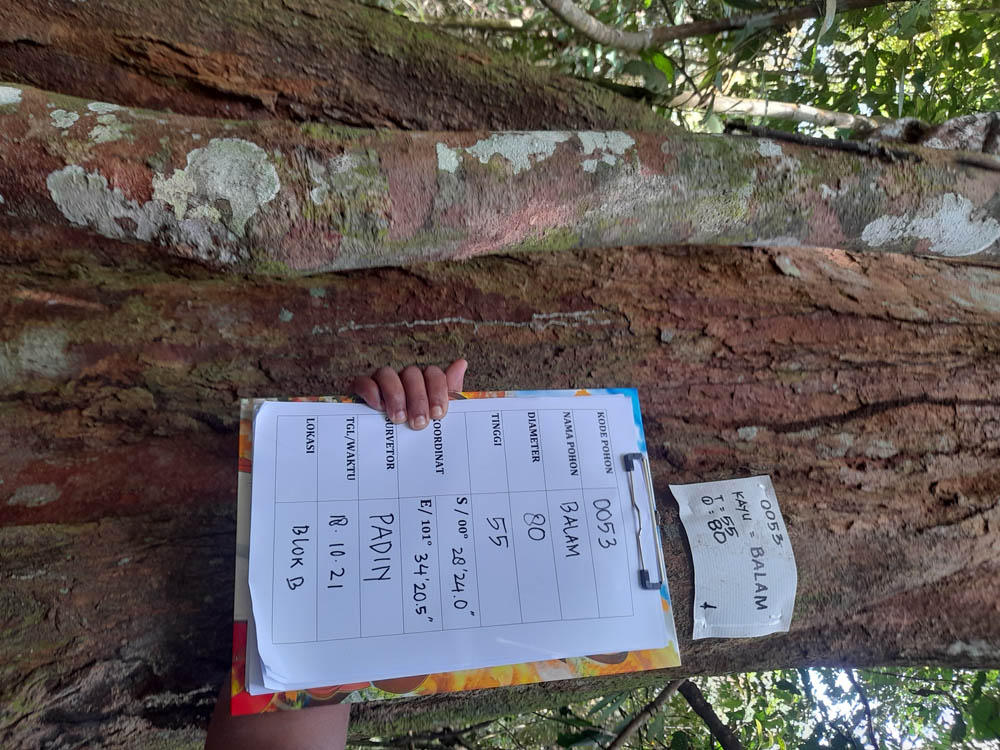 0053
KAYU = BALAM
T = 55
Ⓓ : 80
KODE POHON 0053
NAMA POHON BALAM
DIAMETER 80
TINGGI 55
KOORDINAT S / 00° 28'24.0"
E/ 101° 34'20.5"
SURVETOR PADIN
TGL/WAKTU 18. 10. 21
LOKASI BLOK B